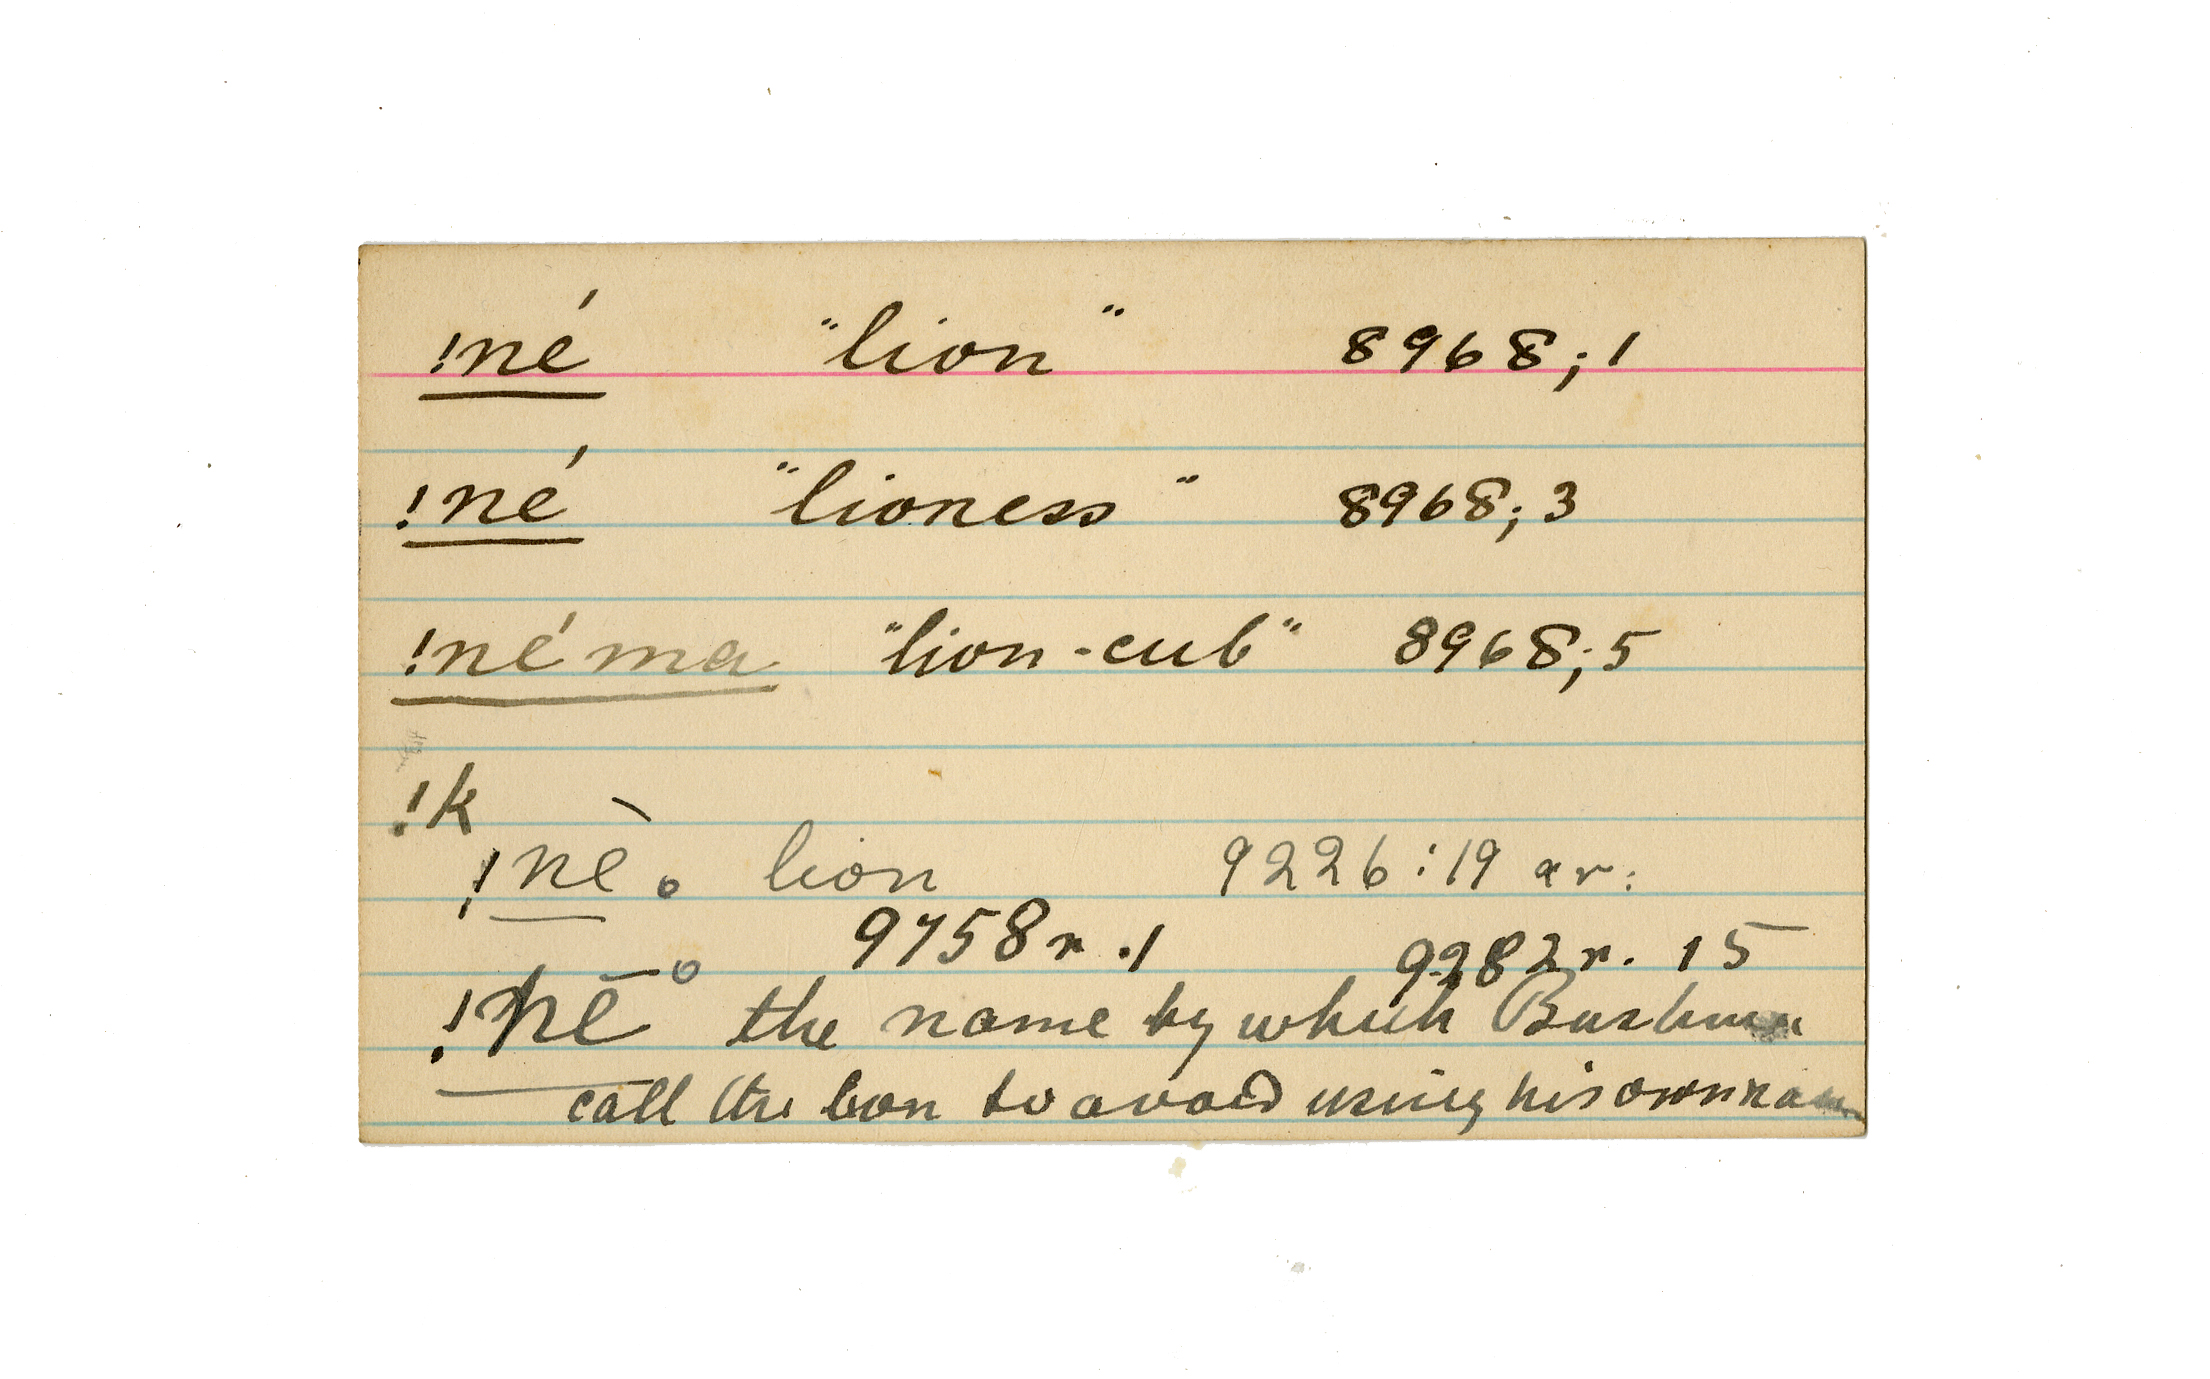 !né "lion" 8968; 1
!né "lioness" 8968; 3
!néma "lion-cub" 8968; 5
!k
!nè o lion 9226 : 19 ar :
9758 r . 1 9282 r. 15
!nē o the name by which Bushmen
call the lion to avoid using his own name